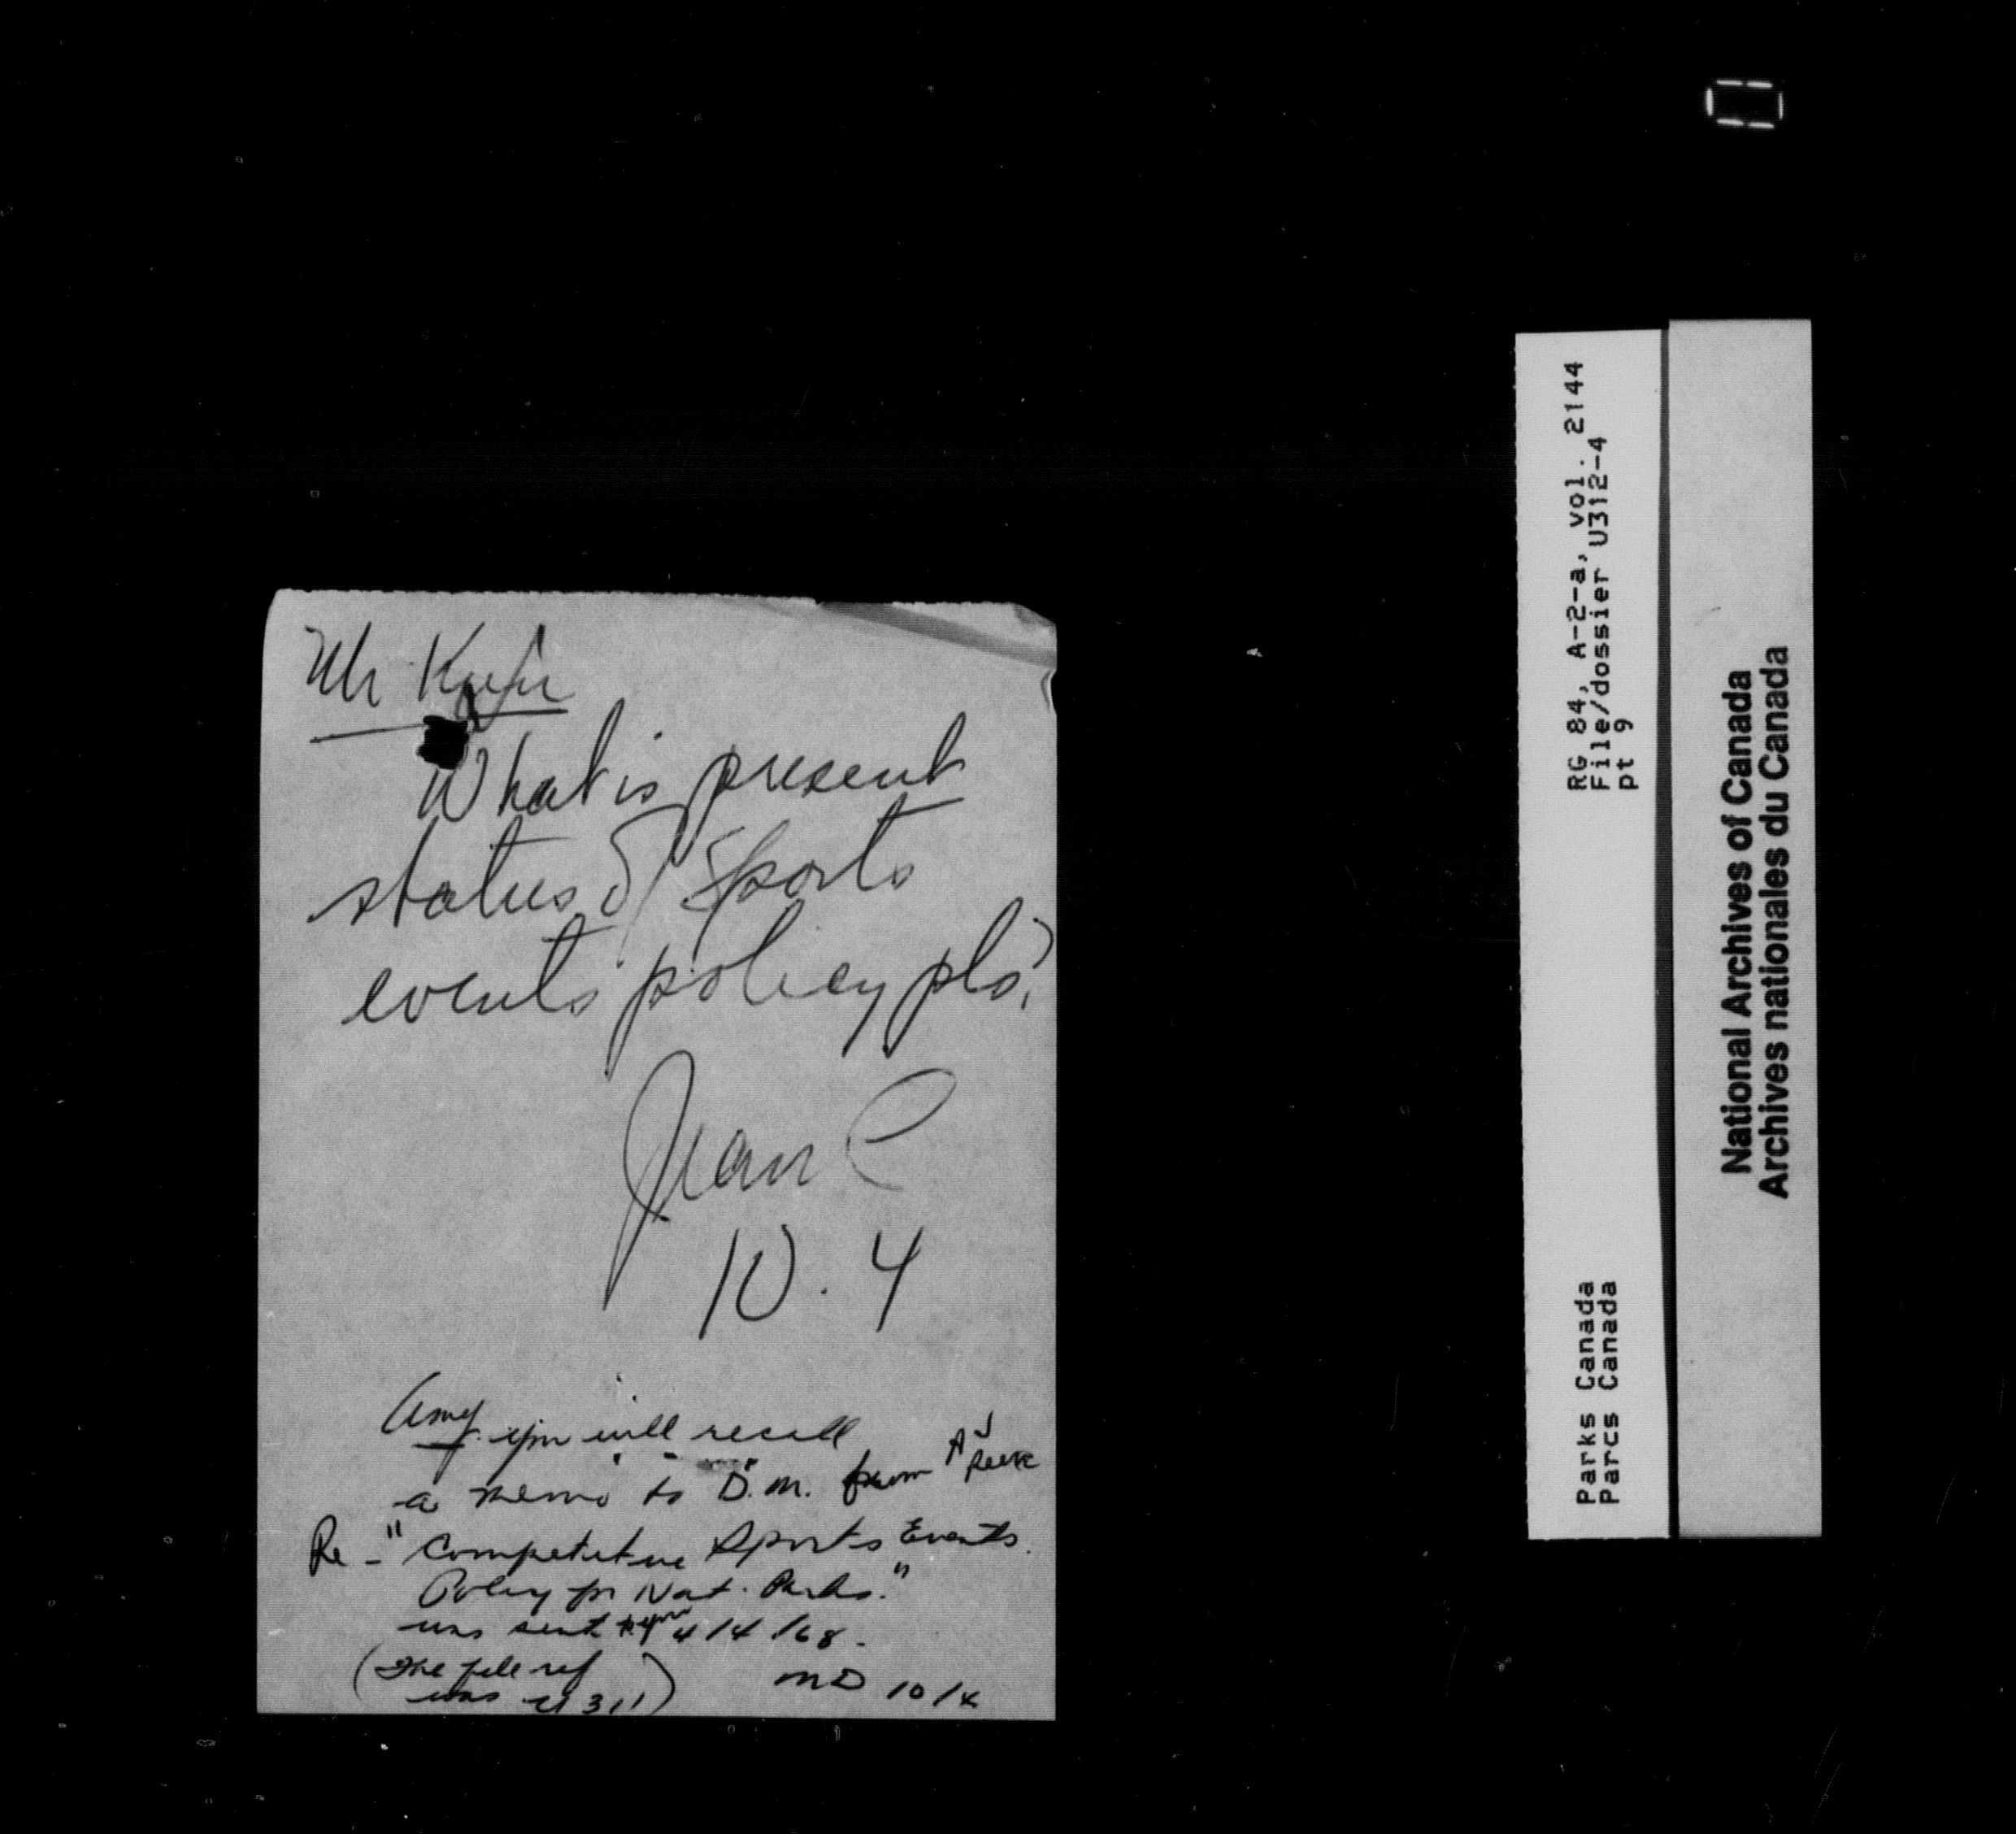 Mr
What is present
status of Sports
events policy pls?
Jean C
10.4
you will recall
a memo to D.M. from A J
Reeve
Re - "Competitive Sports Events
Policy for Nat. Parks."
was sent 4/4/68.
(The file ref
was U 311)
MD 10/4
RG 84, A-2-a, vol. 2144
File/dossier U312-4
pt 9
Parks Canada
Parcs Canada
National Archives of Canada
Archives nationales du Canada